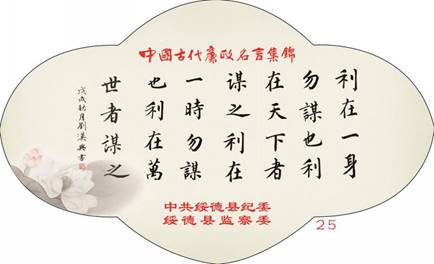 中國古代廉政名言集錦
利在一身
勿謀也利
在天下者
謀之利在
一時勿謀
也利在萬
世者謀之
戊戌秋月劉漢興書
中共绥德县纪委
绥德县监察委
25